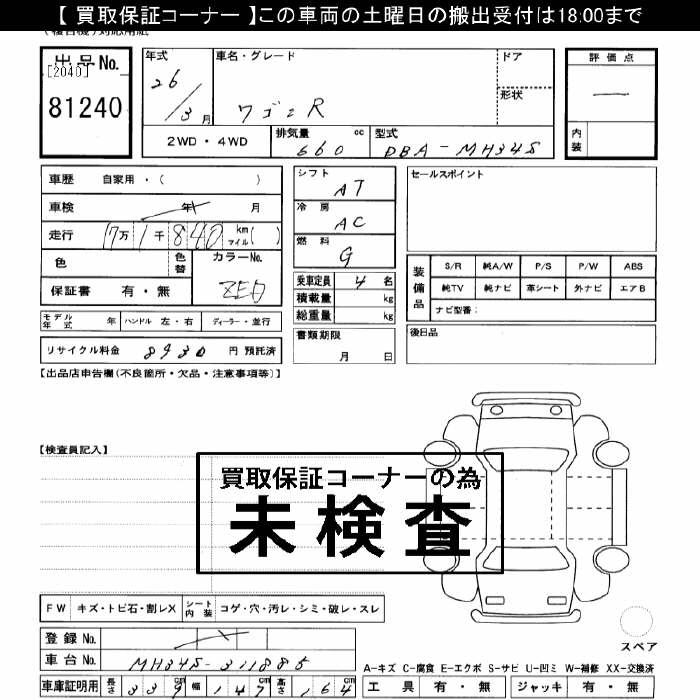 【 買取保証コーナー 】この車両の土曜日の搬出受付は18:00まで
出品No.
[2040]
81240
年式
26/3月
車名・グレード
ワゴンR
ドア
形状
評価点
―
内装
2WD・4WD
排気量 660 cc
型式 DBA-MH34S
車歴 自家用・( )
車検 年 月
走行 17万1千840 km マイル( )
色
色替
カラーNo.
ZE0
保証書 有・無
モデル年式 年 ハンドル 左・右 ディーラー・並行
リサイクル料金 8930 円 預託済
シフト AT
冷房 AC
燃料 G
乗車定員 4 名
積載量 kg
総重量 kg
書類期限
月 日
セールスポイント
装備品
S/R 純A/W P/S P/W ABS
純TV 純ナビ 革シート 外ナビ エアB
ナビ型番:
後日品
【出品店申告欄(不良箇所・欠品・注意事項等)】
【検査員記入】
買取保証コーナーの為
未検査
FW キズ・トビ石・割レX
シート内装 コゲ・穴・汚レ・シミ・破レ・スレ
登録No.
車台No. MH34S-311885
車庫証明用 長さ 339cm 幅 147cm 高さ 164cm
スペア
A-キズ C-腐食 E-エクボ S-サビ U-凹ミ W-補修 XX-交換済
工具 有・無 ジャッキ 有・無